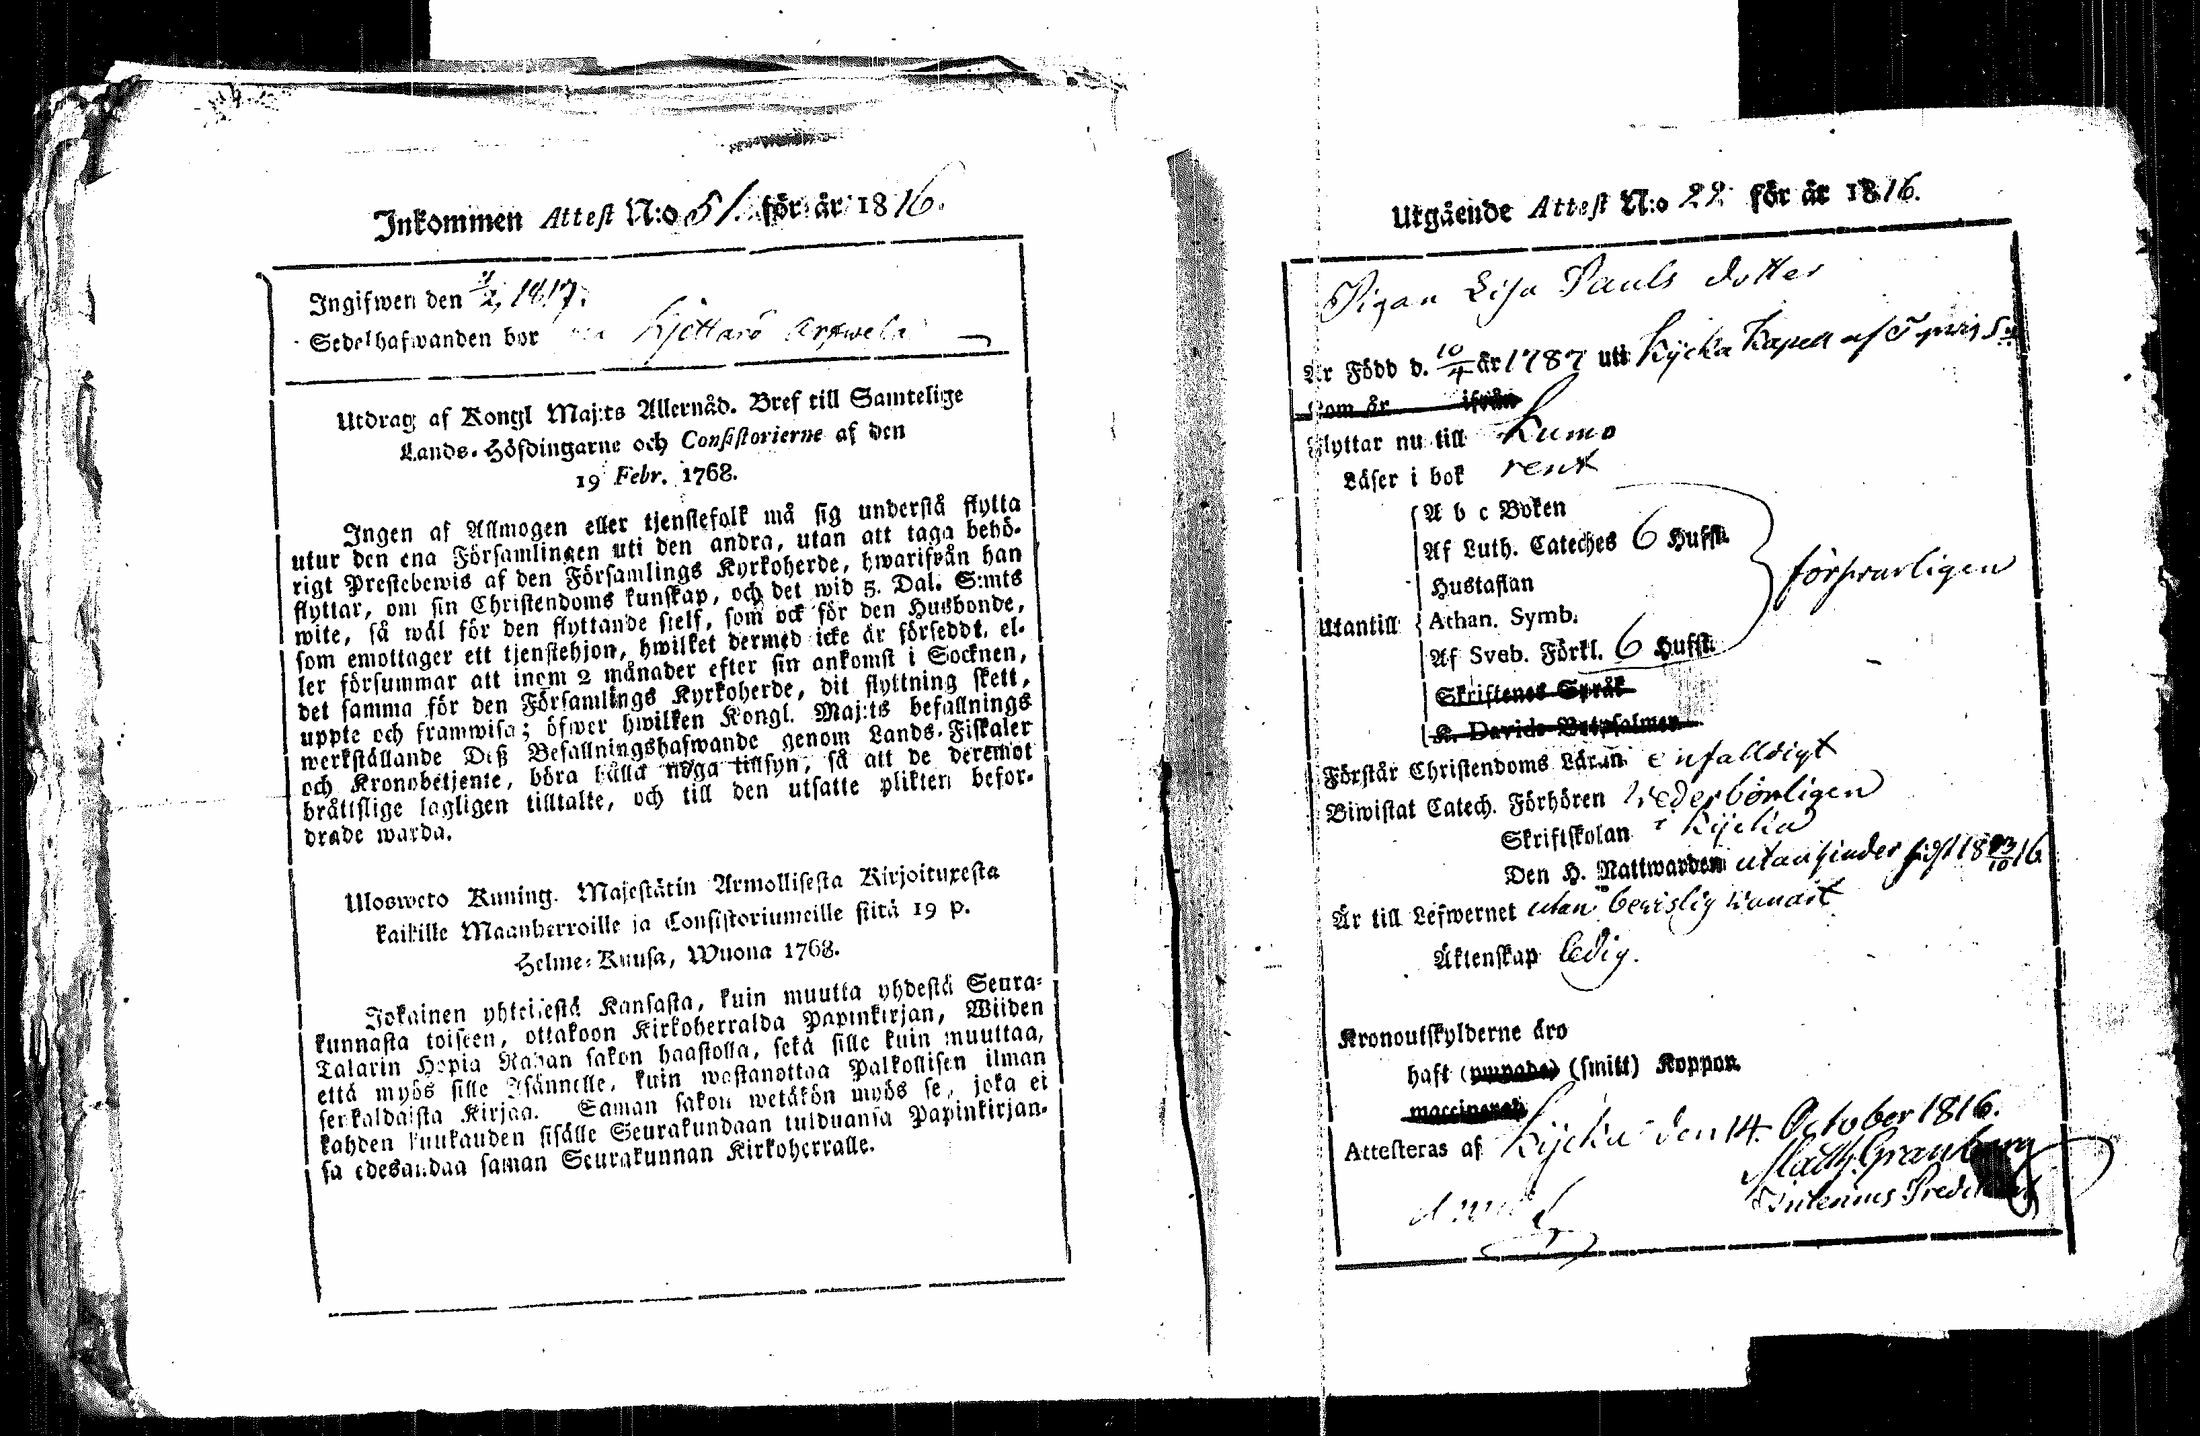 Inkommen Attest N:o 51. för år 1816.
Ingifwen den 2/2 1817.
Sedelhafwanden bor Kjettarö Arfwela
Utdrag af Kongl Maj:ts Allernåd. Bref till Samtelige
Lands-Höfdingarne och Consistorierne af den
19 Febr. 1768.
Ingen af Allmogen eller tjenstefolk må sig understå flytta
utur den ena Församlingen uti den andra, utan att taga behö-
rigt Prestebewis af den Församlings Kyrkoherde, hwarifrån han
flyttar, om sin Christendoms kunskap, och det wid 5. Dal. S:mts
wite, så wäl för den flyttande sielf, som ock för den Husbonde,
som emottager ett tjenstehjon, hwilket dermed icke är förseddt, el-
ler försummar att inom 2 månader efter sin ankomst i Socknen,
det samma för den Församlings Kyrkoherde, dit flyttning skett,
uppte och framwisa; öfwer hwilken Kongl. Maj:ts befallnings
werkställande Deß Befallningshafwande genom Lands-Fiskaler
och Kronobetjente, böra hålla noga tillsyn, så att de deremot
bråttslige lagligen tilltalte, och till den utsatte plikten befor-
drade warda.
Ulosweto Kuning. Majestätin Armollisesta Kirjoituxesta
kaikille Maanherroille ja Consistoriumeille siitä 19 p.
Helme-Kuusa, Wuona 1768.
Jokainen yhteisestä Kansasta, kuin muutta yhdestä Seura-
kunnasta toiseen, ottakoon Kirkoherralda Papinkirjan, Wiiden
Talarin Hopia Rahan sakon haastolla, sekä sille kuin muuttaa,
että myös sille Isännelle, kuin wastanottaa Palkollisen ilman
senkaldaista Kirjaa. Saman sakon wetäkön myös se, joka ei
kahden kuukauden sisälle Seurakundaan tulduansa Papinkirjan-
sa edesandaa saman Seurakunnan Kirkoherralle.
Utgående Attest N:o 22 för år 1816.
Pigan Lisa Pauls dotter
Är Född d. 10/4 år 1787 uti Kycka Kapell af
Kom år ifrån
Flyttar nu till Kumo
Läser i bok rent
A b c Boken
Af Luth. Cateches 6 Hufst.
Hustaflan
Utantill Athan. Symb. försvarligen
Af Sveb. Förkl. 6 Hufst.
Skriftenes Språk
K. Davids Botpsalmer
Förstår Christendoms Läran enfalldigt
Biwistat Catech. Förhören wederbörligen
Skriftskolan i Kycka
Den H. Nattwarden utan hinder sidst 18 13/10 16
Är till Lefwernet utan bewislig wanart
Äktenskap ledig.
Kronoutskylderne äro
haft (ympade) (smitt) Koppor.
vaccinerad
Attesteras af Kycka den 14. October 1816.
Math. Granberg